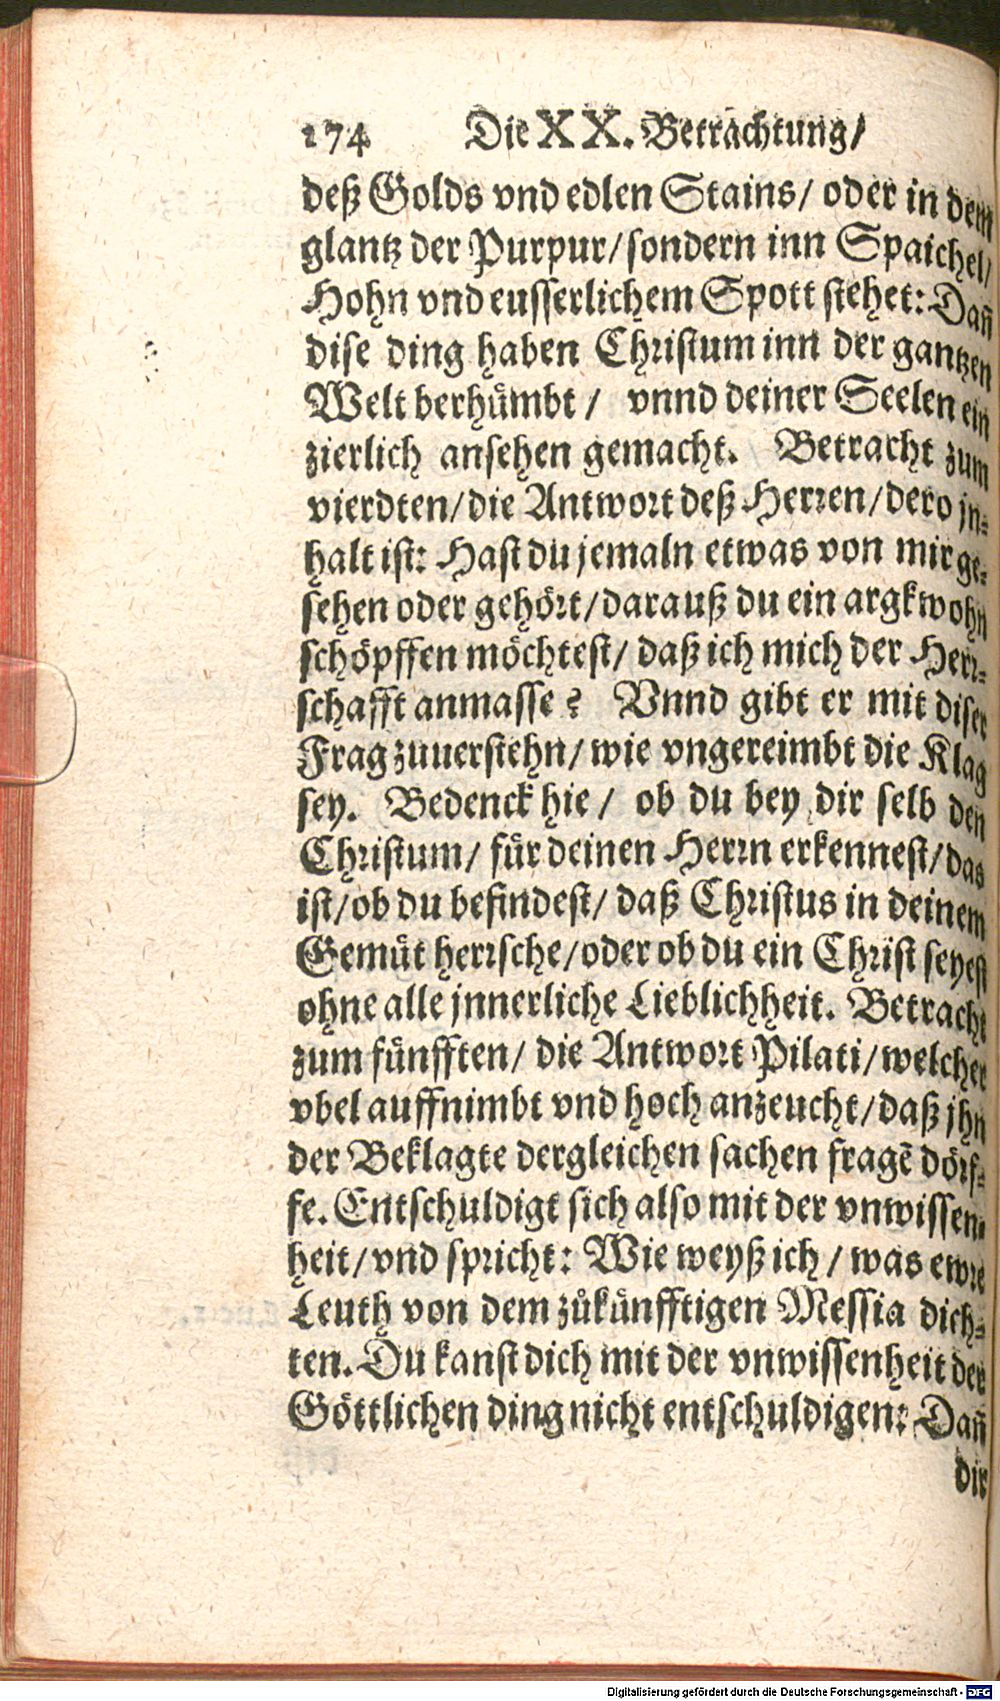 174 Die XX. Betrachtung/
deß Golds vnd edlen Stains/ oder in dem
glantz der Purpur/sondern inn Spaichel/
Hohn vnd eusserlichem Spott stehet: Dañ
dise ding haben Christum inn der gantzen
Welt berhümbt / vnnd deiner Seelen ein
zierlich ansehen gemacht. Betracht zum
vierdten/die Antwort deß Herren/dero jn-
halt ist: Hast du jemaln etwas von mir ge-
sehen oder gehört/darauß du ein argkwohn
schöpffen möchtest/ daß ich mich der Herr-
schafft anmasse? Vnnd gibt er mit diser
Frag zuuerstehn/wie vngereimbt die Klag
sey. Bedenck hie/ ob du bey dir selb den
Christum/ für deinen Herrn erkennest/das
ist/ob du befindest/ daß Christus in deinem
Gemüt herrsche/oder ob du ein Christ seyest
ohne alle jnnerliche Lieblichheit. Betracht
zum fünfften/ die Antwort Pilati/welcher
vbel auffnimbt vnd hoch anzeucht/daß jhn
der Beklagte dergleichen sachen fragẽ dörf-
fe. Entschuldigt sich also mit der vnwissen-
heit/vnd spricht: Wie weyß ich / was ewre
Leuth von dem zůkünfftigen Messia dich-
ten. Du kanst dich mit der vnwissenheit der
Göttlichen ding nicht entschuldigen: Dañ
dir
Digitalisierung gefördert durch die Deutsche Forschungsgemeinschaft - DFG